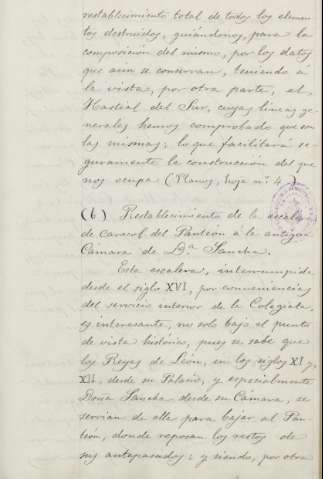 restablecimiento total de todos los elemen-
tos destruidos, guiándonos, para la
composición del mismo, por los datos
que aún se conservan, teniendo á
la vista, por otra parte, el
Hastial del Sur, cuyas líneas ge-
nerales hemos comprobado que son
las mismas; lo que facilitará se-
guramente la construcción del que
nos ocupa (Planos, hoja nº 4.)
(b) Restablecimiento de la escalera
de caracol del Panteón á la antigua
Cámara de Dª Sancha.
Esta escalera, interrumpida
desde el siglo XVI, por conveniencias
del servicio interior de la Colegiata,
es interesante, no solo bajo el punto
de vista histórico, pues se sabe que
los Reyes de León, en los siglos XI y
XII, desde su Palacio, y especialmente
Doña Sancha desde su Cámara, se
servían de ella para bajar al Pan-
teón, donde reposan los restos de
sus antepasados; y siendo, por otra